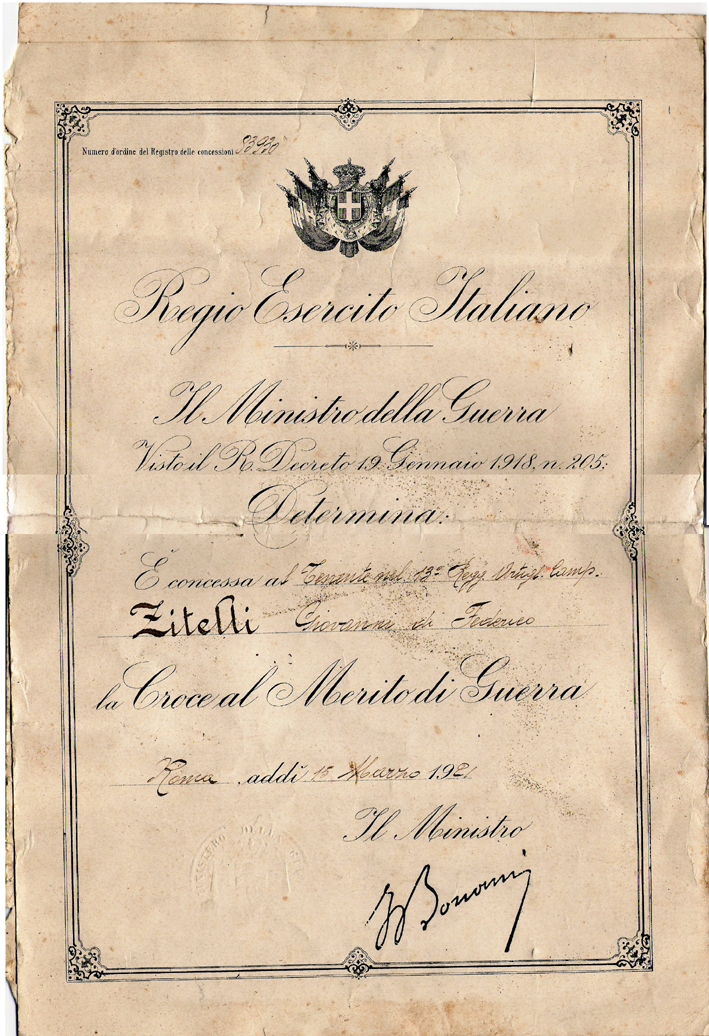 Numero d'ordine del Registro delle concessioni
Regio Esercito Italiano
Il Ministro della Guerra
Visto il R. Decreto 19 Gennaio 1918, n. 205;
Determina:
È concessa al Tenente nel 13º Regg. Artigl. Camp.
Zitelli Giovanni di Federico
la Croce al Merito di Guerra
Roma, addì 15 Marzo 1921
Il Ministro
Bonomi